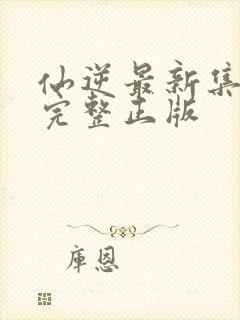 仙逆最新集
完整正版
库恩